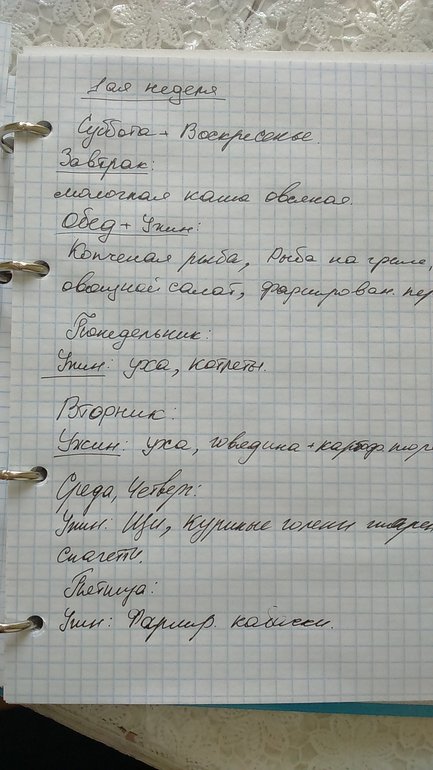 1ая неделя
Суббота + Воскресенье.
Завтрак:
молочная каша овсяная.
Обед + Ужин:
Копченая рыба, Рыба на гриле,
овощной салат, фарширован. пер
Понедельник:
Ужин: уха, котлеты.
Вторник:
Ужин: уха, говядина + картоф
Среда, Четверг:
Ужин: Щи, Куриные голени
спагетти.
Пятница:
Ужин: Фаршир. кабачки.